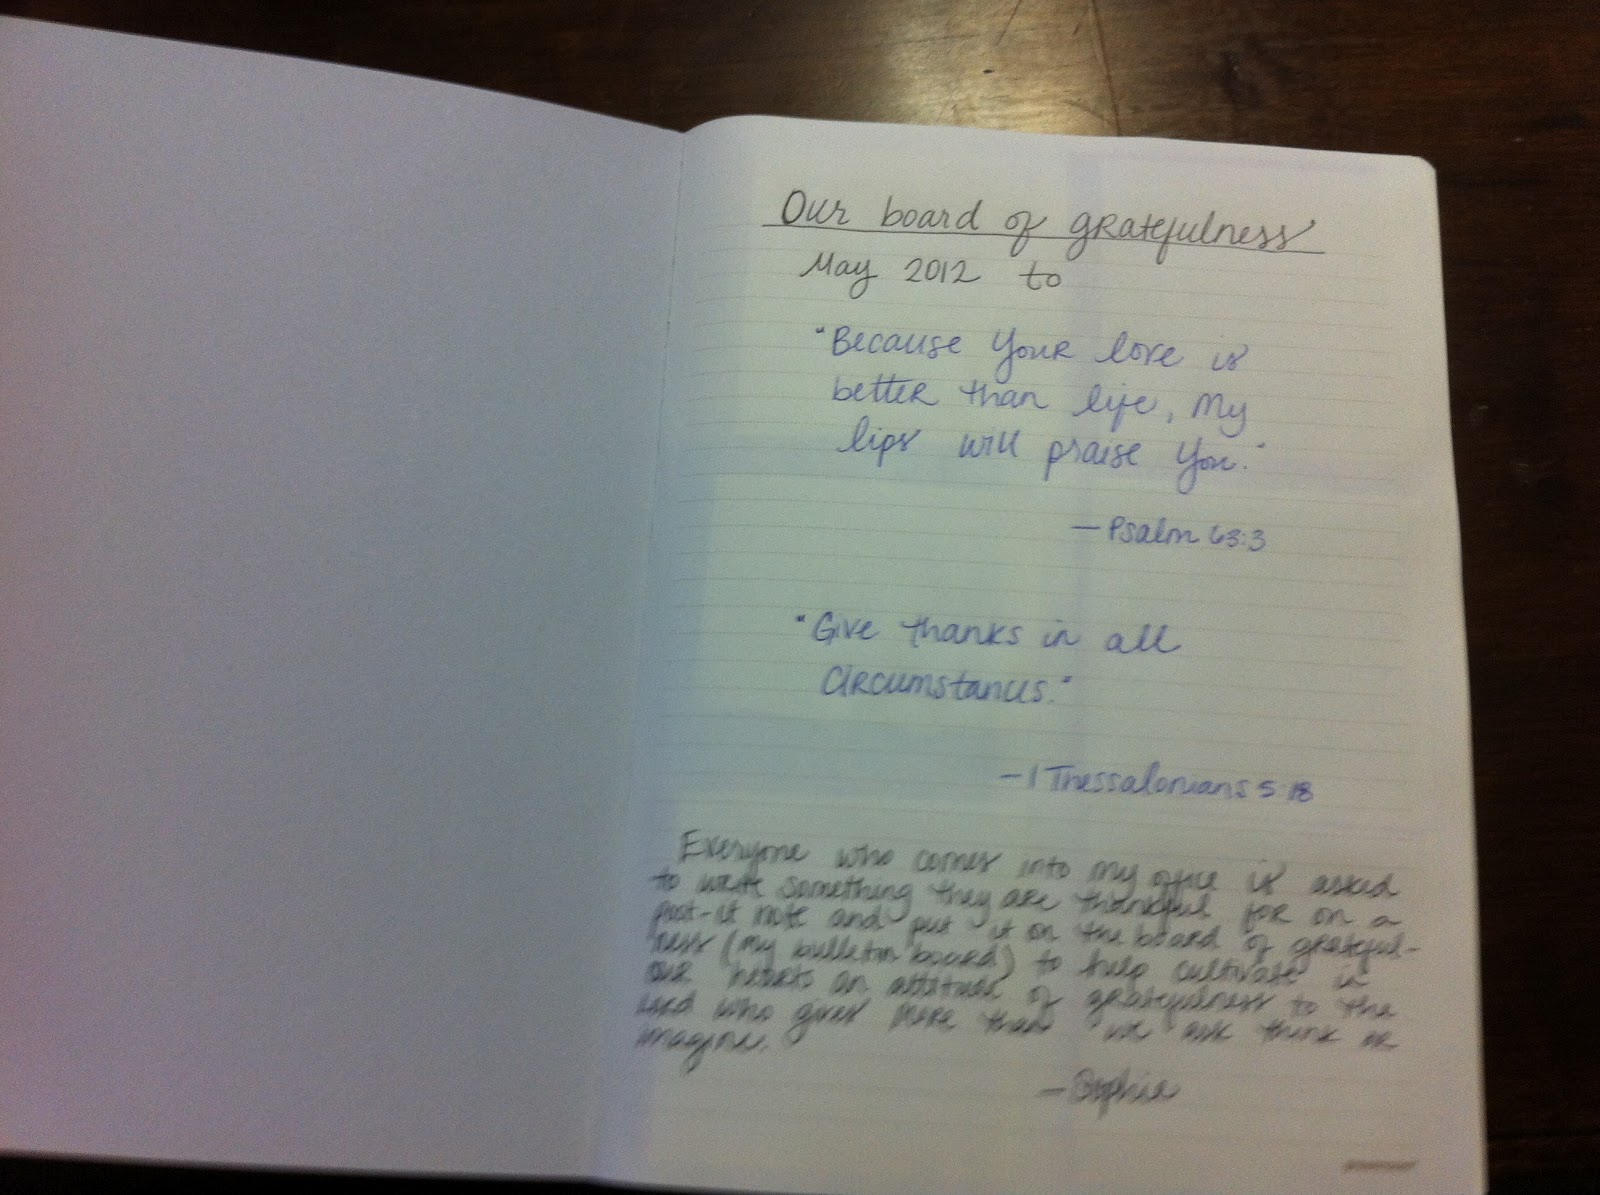 Our board of gratefulness
May 2012 to
"Because Your love is
better than life, my
lips will praise You."
—Psalm 63:3
"Give thanks in all
circumstances."
—1 Thessalonians 5:18
Everyone who comes into my office is asked
to write something they are thankful for on a
post-it note and put it on the board of grateful-
ness (my bulletin board) to help cultivate in
our hearts an attitude of gratefulness to the
who gives more than we ask think or
imagine.
—Sophia